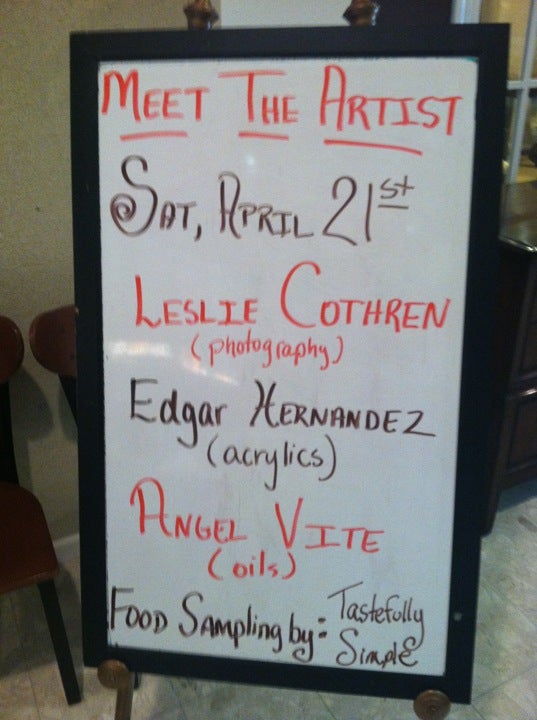 MEET THE ARTIST
SAT, APRIL 21st
LESLIE COTHREN
(photography)
Edgar HERNANDEZ
(acrylics)
ANGEL VITE
(oils)
FOOD SAMPLING by: Tastefully
SimplE